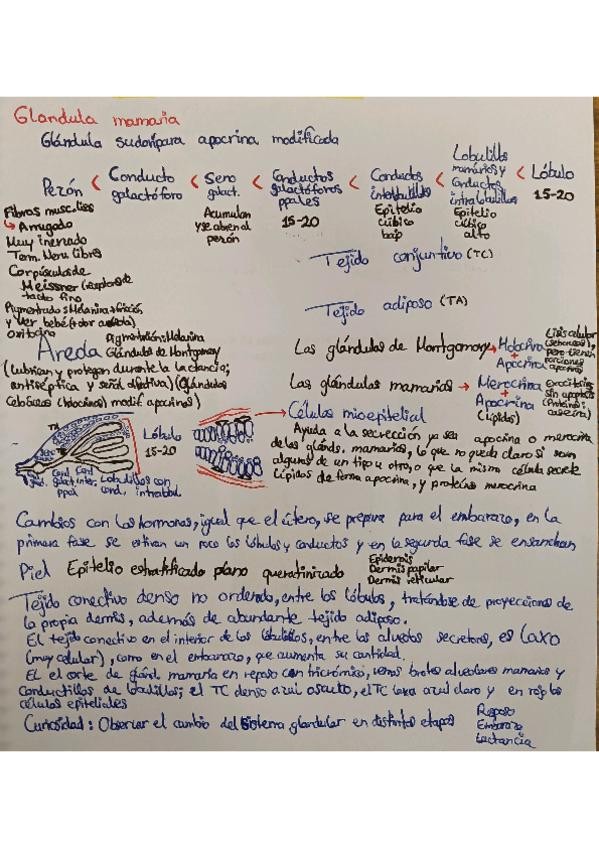 Glandula mamaria
Glándula sudorípara apocrina modificada
Pezón < Conducto galactóforo < Seno galact. < Conductos galactóforos ppales < Conductos interlobulillos < Lobulillos mamarios y conductos intralobulillos < Lóbulo
Fibras musc. lisas
→ Arrugado
Muy inervado
Term. Nerv. libres
Corpúsculos de
Meissner
tacto fino
Pigmentado: Melanina
y ver bebé
oxitocina
Acumulan
y se abren al
pezón
15-20
Epitelio
cúbico
bajo
Epitelio
cúbico
alto
15-20
Tejido conjuntivo (TC)
Tejido adiposo (TA)
Areola
Pigmentación: Melanina
Glándulas de Montgomery
(Lubrican y protegen durante la lactancia;
antiséptica y señal olfativa) (Glándulas
sebáceas (holocrinas) modif apocrinas)
Las glándulas de Montgomery → Holocrina + Apocrina
Lisis celular
(sebáceas),
pero tienen
porciones
apocrinas
Las glándulas mamarias → Merocrina + Apocrina
(Lípidos)
Exocitosis
sin apoptosis
(Proteínas:
caseína)
→ Células mioepitelial
Ayuda a la secreción ya sea apocrina o merocrina
de las glánds. mamarias, lo que no queda claro si son
algunas de un tipo u otro, o que la misma célula secrete
lípidos de forma apocrina, y proteínas merocrina
TA
TC
Lóbulo
15-20
Cond gal.
Cond galact. ppal
Cond inter.
Lobulillos con
cond. intralobul
Cambios con las hormonas, igual que el útero, se prepara para el embarazo, en la
primera fase se estiran un poco los lóbulos y conductos y en la segunda fase se ensanchan
Piel Epitelio estratificado plano queratinizado
Epidermis
Dermis papilar
Dermis reticular
Tejido conectivo denso no ordenado, entre los lóbulos, tratándose de proyecciones de
la propia dermis, además de abundante tejido adiposo.
El tejido conectivo en el interior de los lobulillos, entre los alveolos secretores, es laxo
(muy celular), como en el embarazo, que aumenta su cantidad.
El el corte de gland. mamaria en reposo con tricrómico, vemos brotes alveolares mamarios y
conductillos de lobulillos; el TC denso azul oscuro, el TC laxo azul claro y en rojo las
células epiteliales
Curiosidad: Observar el cambio del sistema glandular en distintas etapas
Reposo
Embarazo
Lactancia